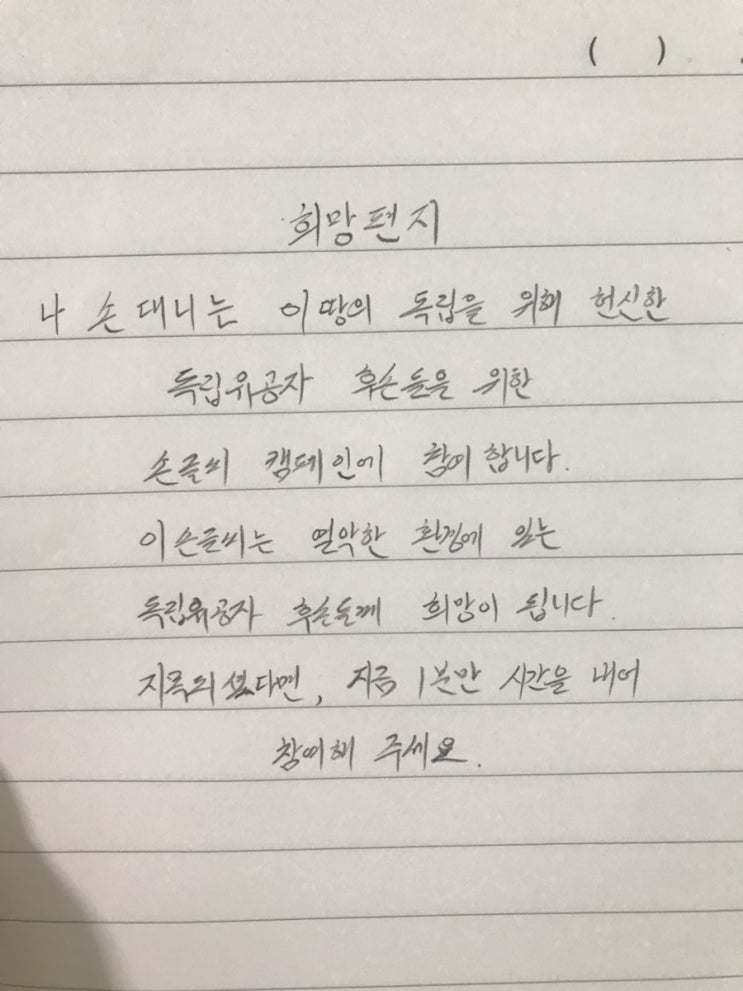 (   )
희망편지
나 손대니는 이 땅의 독립을 위해 헌신한
독립유공자 후손들을 위한
손글씨 캠페인에 참여합니다.
이 손글씨는 열악한 환경에 있는
독립유공자 후손들께 희망이 됩니다.
지목되셨다면, 지금 1분만 시간을 내어
참여해 주세요.